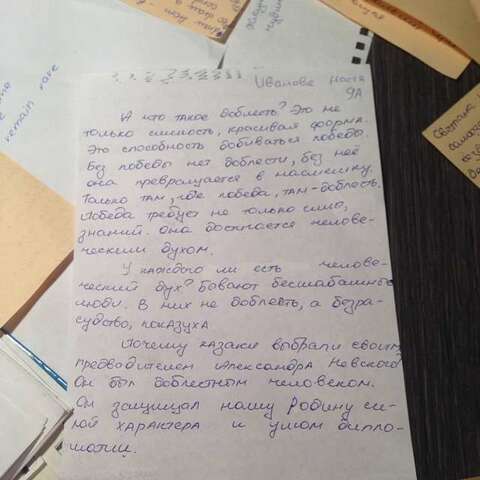 remain rare
Иванова Настя
9А
А что такое доблесть? Это не
только смелость, красивая форма.
Это способность добиваться победы.
Без победы нет доблести, без неё
она превращается в насмешку.
Только там, где победа, там - доблесть.
Победа требует не только силы,
знаний. она достигается челове-
ческим духом.
У каждого ли есть челове-
ческий дух? Бывают бесшабашные
люди. В них не доблесть, а безра-
судство, показуха
Почему казаки выбрали своим
предводителем Александра Невского?
Он был доблестным человеком.
Он защищал нашу Родину си-
лой характера и умом дипло-
матии.
Светлана